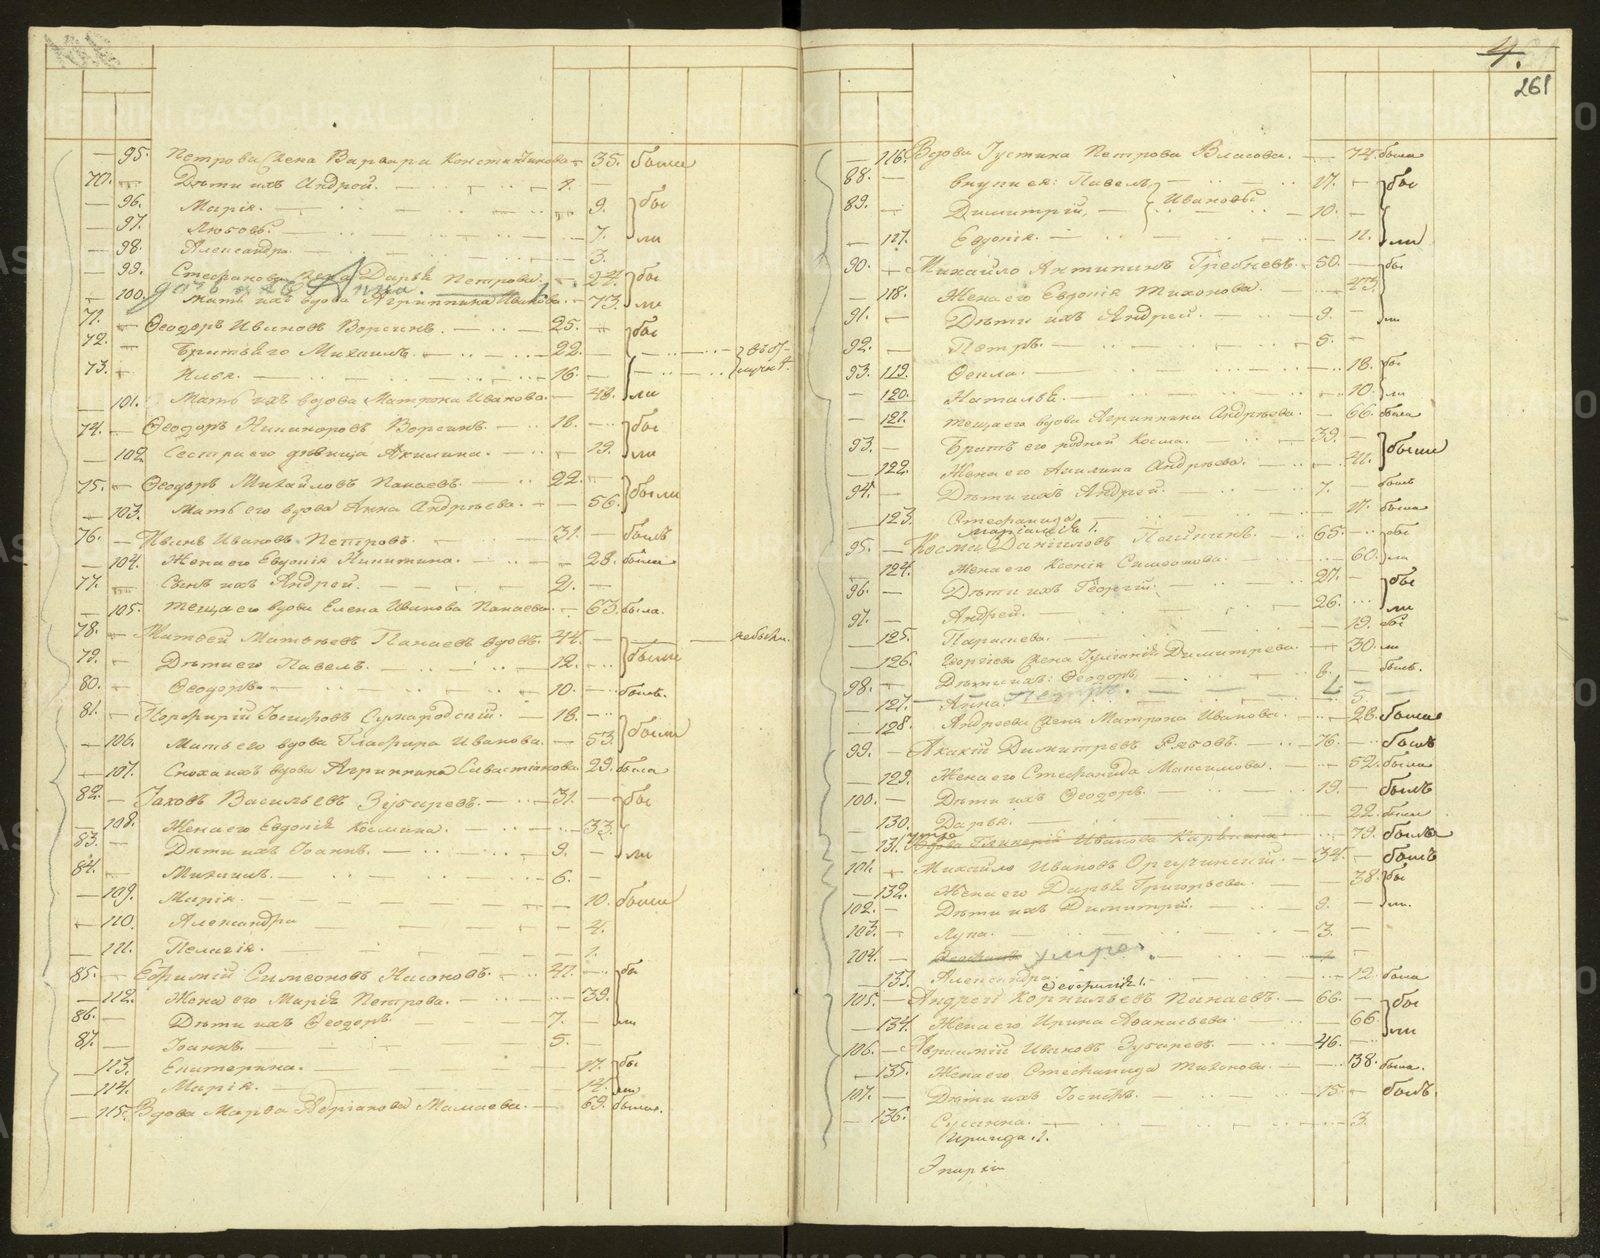 95. Петрова жена Варвара Константинова — 35. были
70. — Дѣти ихъ Андрей. — 1. —
— 96. Марія. — 9. } бы
— 97. Любовь. — 7. ли
— 98. Александра. — 3.
— 99. Стефанова жена Дарья Петрова. — 24. } бы
дочь ихъ Анна.
— 100. Мать ихъ вдова Агриппина Иванова. — 73. ли
71. — Ѳеодоръ Ивановъ Ворсинъ. — 25. — } бы
72. — Братъ его Михаилъ. — 22. —
73. — Илья. — 16. —
— 101. Мать ихъ вдова Матрона Иванова. — 48. ли
74. — Ѳеодоръ Никифоровъ Ворсинъ. — 18. — } бы
— 102. Сестра его дѣвица Акилина. — 19. ли
75. — Ѳеодоръ Михайловъ Панаевъ. — 22. —
— 103. Мать его вдова Анна Андрѣева. — 56. } были
76. — Иванъ Ивановъ Петровъ. — 31. — былъ
— 104. Жена его Евдокія Никитина. — 28. была
77. — Сынъ ихъ Андрей. — 2. —
— 105. Теща его вдова Елена Иванова Панаева. — 63. была.
78. — Матвей Матвѣевъ Панаевъ вдовъ. 44. — небылъ.
79. — Дѣти его Павелъ. — 12. } были
80. — Ѳеодоръ. — 10. — былъ.
81. — Порфирій Іосифовъ — 18. —
— 106. Мать его вдова Глафира Иванова. — 53. } были
— 107. Сноха ихъ вдова Агриппина Севастіанова 29. была
82. — Іаковъ Васильевъ Зубаревъ. — 31. — } бы
— 108. Жена его Евдокія Космина. — 33.
83. — Дѣти ихъ Іоаннъ. — 9. — ли
84. — Михаилъ. — 6. —
— 109. Марія. — 10. были
— 110. Александра — 4.
— 111. Пелагія. — 1.
85. — Ефимій Симеоновъ Насоновъ. — 41. — } бы
— 112. Жена его Марія Петрова. — 39.
86. — Дѣти ихъ Ѳеодоръ. — 7. — ли
87. — Іоаннъ. — 5. —
— 113. Екатерина. — 17. } бы
— 114. Марія. — 14. ли
— 115. Вдова Марѳа Адріанова Мамаева. — 69. была.
4.
261
— 116. Вдова Іустина Петрова Власова. — 74. была
88. — внуки ея: Павелъ } — 17. — } бы
89. — Димитрій, — } Ивановы — 10. —
— 117. Евдокія. — 11. ли
90. — Михайло Антипинъ Гребневъ. — 50. — } бы
— 118. Жена его Евдокія Тихонова. — 43.
91. — Дѣти ихъ Андрей. — 9. — ли
92. — Петръ. — 5. —
93. 119. Ѳекла. — 18. бы
— 120. Наталья. — 10. ли
— 121. теща его вдова Агриппина Андрѣева. — 66. была
93. — Братъ его родной Косма. — 39. — } были
— 122. Жена его Акилина Андрѣева. — 41.
94. — Дѣти ихъ Андрей. — 7. — былъ
— 123. Стефанида — 11. была
95. — Косма Даніиловъ — 65. — } бы
— 124. Жена его Ксенія Симеонова. — 60. ли
96. — Дѣти ихъ Георгій. — 27. — } бы
97. — Андрей. — 26. ли
— 125. Параскева. — 19. бы
— 126. Георгіева жена Іуліанія Димитрева. — 30. ли
98. — Дѣти ихъ: Ѳеодоръ — 6. — былъ.
— 127. Анна. Петръ. — 5.
— 128. Андреева жена Матрона Иванова. — 26. были
99. — Акакій Димитревъ Рябовъ. — 76. — былъ
— 129. Жена его Стефанида Максимова. — 52. была
100. — Дѣти ихъ Ѳеодоръ. — 19. — былъ
— 130. Дарья. — 22. была
— 131. умре Вдова Гликерія Иванова — 79. была
101. — Михайло Ивановъ — 34. — былъ
— 132. Жена его Дарья Григорьева. — 38. } бы
102. — Дѣти ихъ Димитрій. — 9. — ли.
103. — Лупа. — 3. —
104. — умре.
— 133. Александра. — 12. была
105. — Андрей Корнильевъ Панаевъ. — 66. — } бы
— 134. Жена его Ирина Аѳанасьева. — 66. ли
106. — Авраамій Ивановъ Зубаревъ. — 46. —
— 135. Жена его Стефанида Тихонова. — 38. была.
107. — Дѣти ихъ Іосифъ. — 15. — былъ.
— 136. Сусанна. — 3.
Ираида. 1.